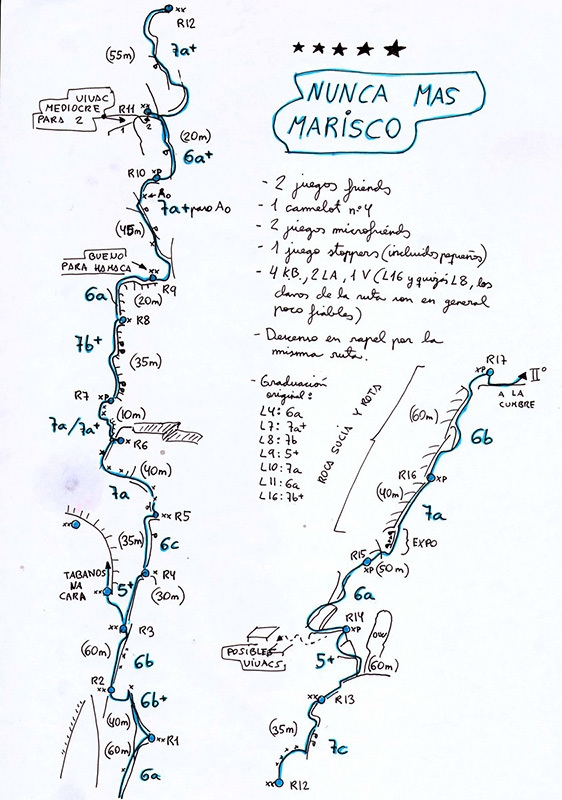 NUNCA MAS
MARISCO
- 2 juegos friends
- 1 camelot nº4
- 2 juegos microfriends
- 1 juego stoppers (incluidos pequeños)
- 4 KB., 2 LA, 1 V (L16 y quizás L8, los
clavos de la ruta son en general
poco fiables)
- Descenso en rapel por la
misma ruta.
- Graduación
original:
L4: 6a
L7: 7a+
L8: 7b
L9: 5+
L10: 7a
L11: 6a
L16: 7b+
R12
7a+
(55m)
VIVAC
MEDIOCRE
PARA 2
R11
xx
1
2
(20m)
6a+
R10
xP
A0
7a+ paso A0
(45m)
BUENO
PARA HAMACA
xx
R9
6a
(20m)
R8
7b+
(35m)
R7
xP
7a/7a+
(10m)
R6
(40m)
7a
xx
R5
(35m)
6c
xx
TABANOS
NA
CARA
xx
5+
xx
R4
(30m)
xx
R3
(60m)
6b
R2
xx
6b+
(40m)
xx
R1
(60m)
6a
R17
xP
IIº
A LA
CUMBRE
ROCA SUCIA Y ROTA
(60m)
6b
R16
xP
(40m)
7a
EXPO
R15
xP
(50m)
6a
R14
xP
POSIBLES
VIVACS
5+
OW
(60m)
xx
R13
(35m)
7c
xx
R12